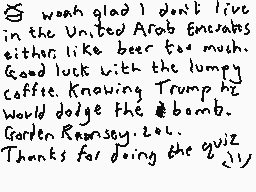 woah glad I don't live
in the United Arab Emerates
either. like beer too much.
Good luck with the lumpy
coffee. Knowing Trump he
would dodge the bomb.
Gorden Ramsey. lol.
Thanks for doing the quiz